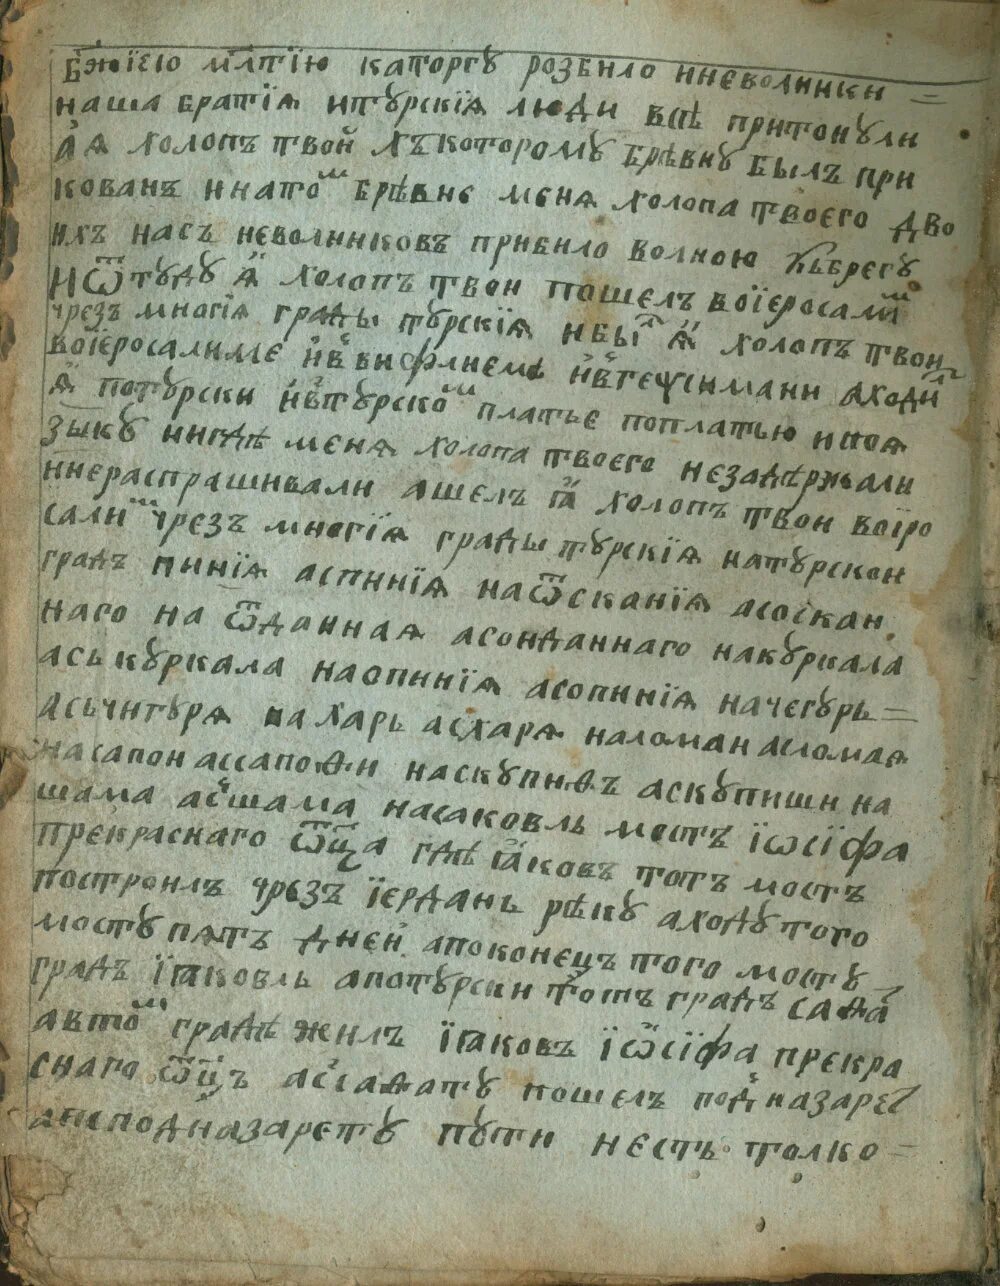 Бжїею млтїю каторгу розбило иневолники =
наша братїѧ итурскїѧ люди всѣ притонули
аѧ холопъ твой хъкоторому брѣвну былъ при
кованъ инатом брѣвне меня холопа твоего дво
ихъ насъ неволниковъ прибило волною къбрегу
иѿтуду ѧ холопъ твои пошелъ воїеросалим
чрезъ многїѧ грады турскїѧ ибыл ѧ холопъ твои
воїеросалиме ивъвифлиеме ивъгеѱимани аходил
ѧ потурски ивътурском платье поплатью иноѧ
зыку нигдѣ меня холопа твоего незадержали
инераспрашивали ашелъ ꙗ холопъ твои воїро
салим чрезъ многїѧ грады турскїѧ натурскои
градъ пинїѧ аспинїѧ наѿсканїѧ асоїскан
наго на ѿданнаѧ асонданнаго накуркала
аськуркала наопинїѧ асопинїѧ начегурь =
асьчигурѧ на харь асхарѧ наломан асломаѧ
насапои ассапоѳи наскупиѳъ аскупиши на
шама асшама насаковль мостъ їѡсїфа
прекраснаго ѿца гдѣ ꙗковъ тотъ мостъ
построилъ чрезъ їерданъ рѣку аходу того
мосту пѧтъ днеи апоконецъ того мосту
градъ їꙗковль апотурски тотъ градъ саѳа
автом градѣ жилъ їꙗковъ їѡсїфа прекра
снаго ѿцъ асъсаѳату пошелъ под назарет
аисподназарету пути несть толко =